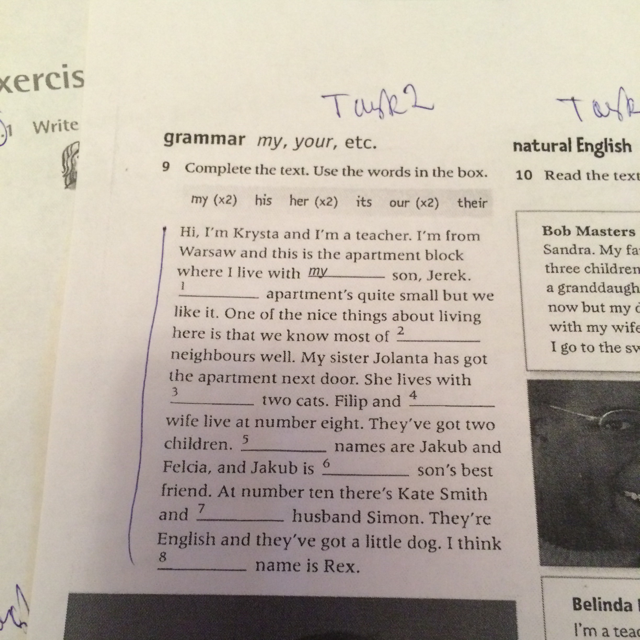 xercis
1 Write
Task 2
Task
grammar my, your, etc.
9 Complete the text. Use the words in the box.
my (x2) his her (x2) its our (x2) their
Hi, I'm Krysta and I'm a teacher. I'm from
Warsaw and this is the apartment block
where I live with my______ son, Jerek.
1______ apartment's quite small but we
like it. One of the nice things about living
here is that we know most of 2______
neighbours well. My sister Jolanta has got
the apartment next door. She lives with
3______ two cats. Filip and 4______
wife live at number eight. They've got two
children. 5______ names are Jakub and
Felcia, and Jakub is 6______ son's best
friend. At number ten there's Kate Smith
and 7______ husband Simon. They're
English and they've got a little dog. I think
8______ name is Rex.
natural English
10 Read the text
Bob Masters
Sandra. My fa
three children
a granddaugh
now but my d
with my wife
I go to the sw
Belinda
I'm a teac